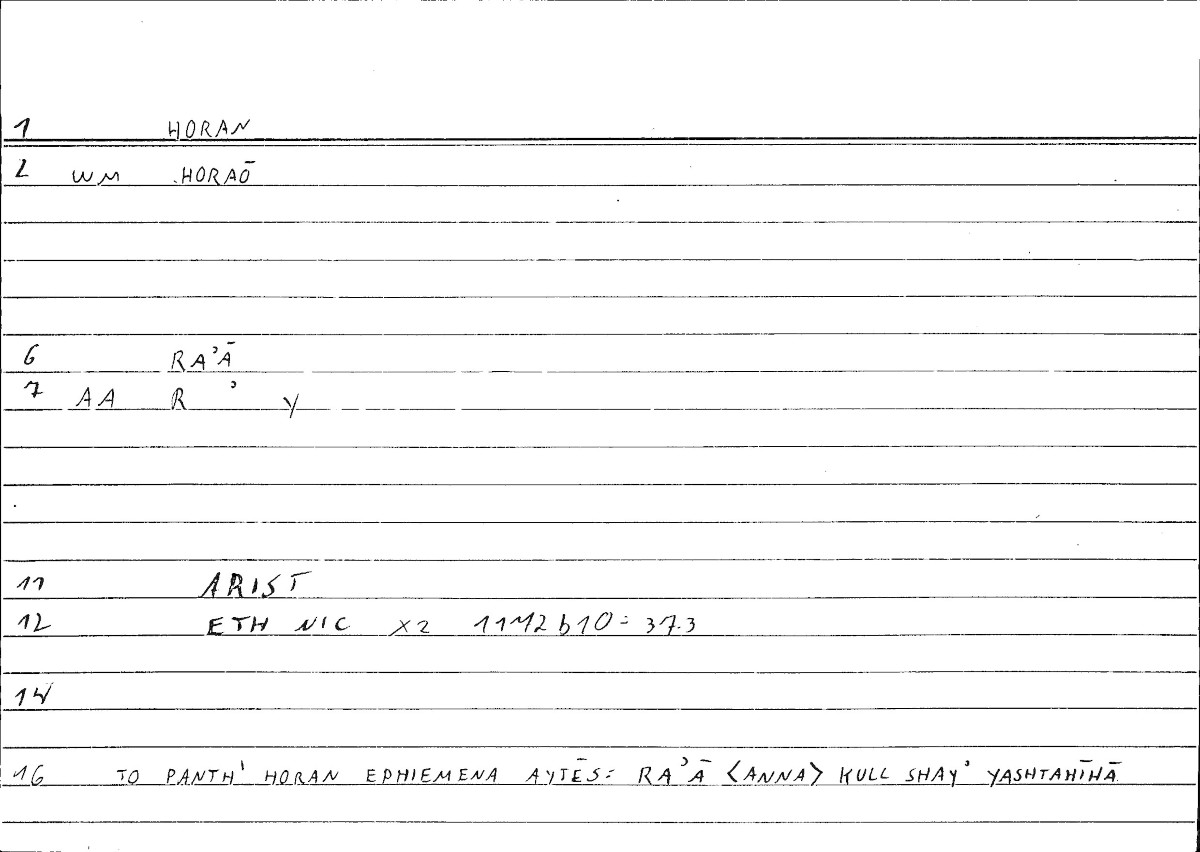 1 HORAN
2 WM HORAŌ
6 RA'Ā
7 AA R ' Y
11 ARIST
12 ETH NIC X2 1172b10 = 373
14
16 TO PANTH' HORAN EPHIEMENA AYTĒS = RA'Ā <ANNA> KULL SHAY' YASHTAHĪHĀ